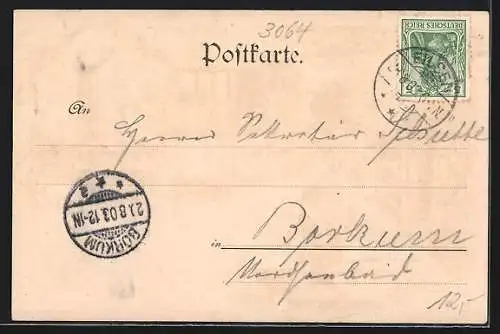 3064
Postkarte.
DEUTSCHES REICH
EILSEN
An
Herrn Sekretär Schütte
BORKUM
21.8.03.12-1N
* * 2
in Borkum
Nordseebad
12,-